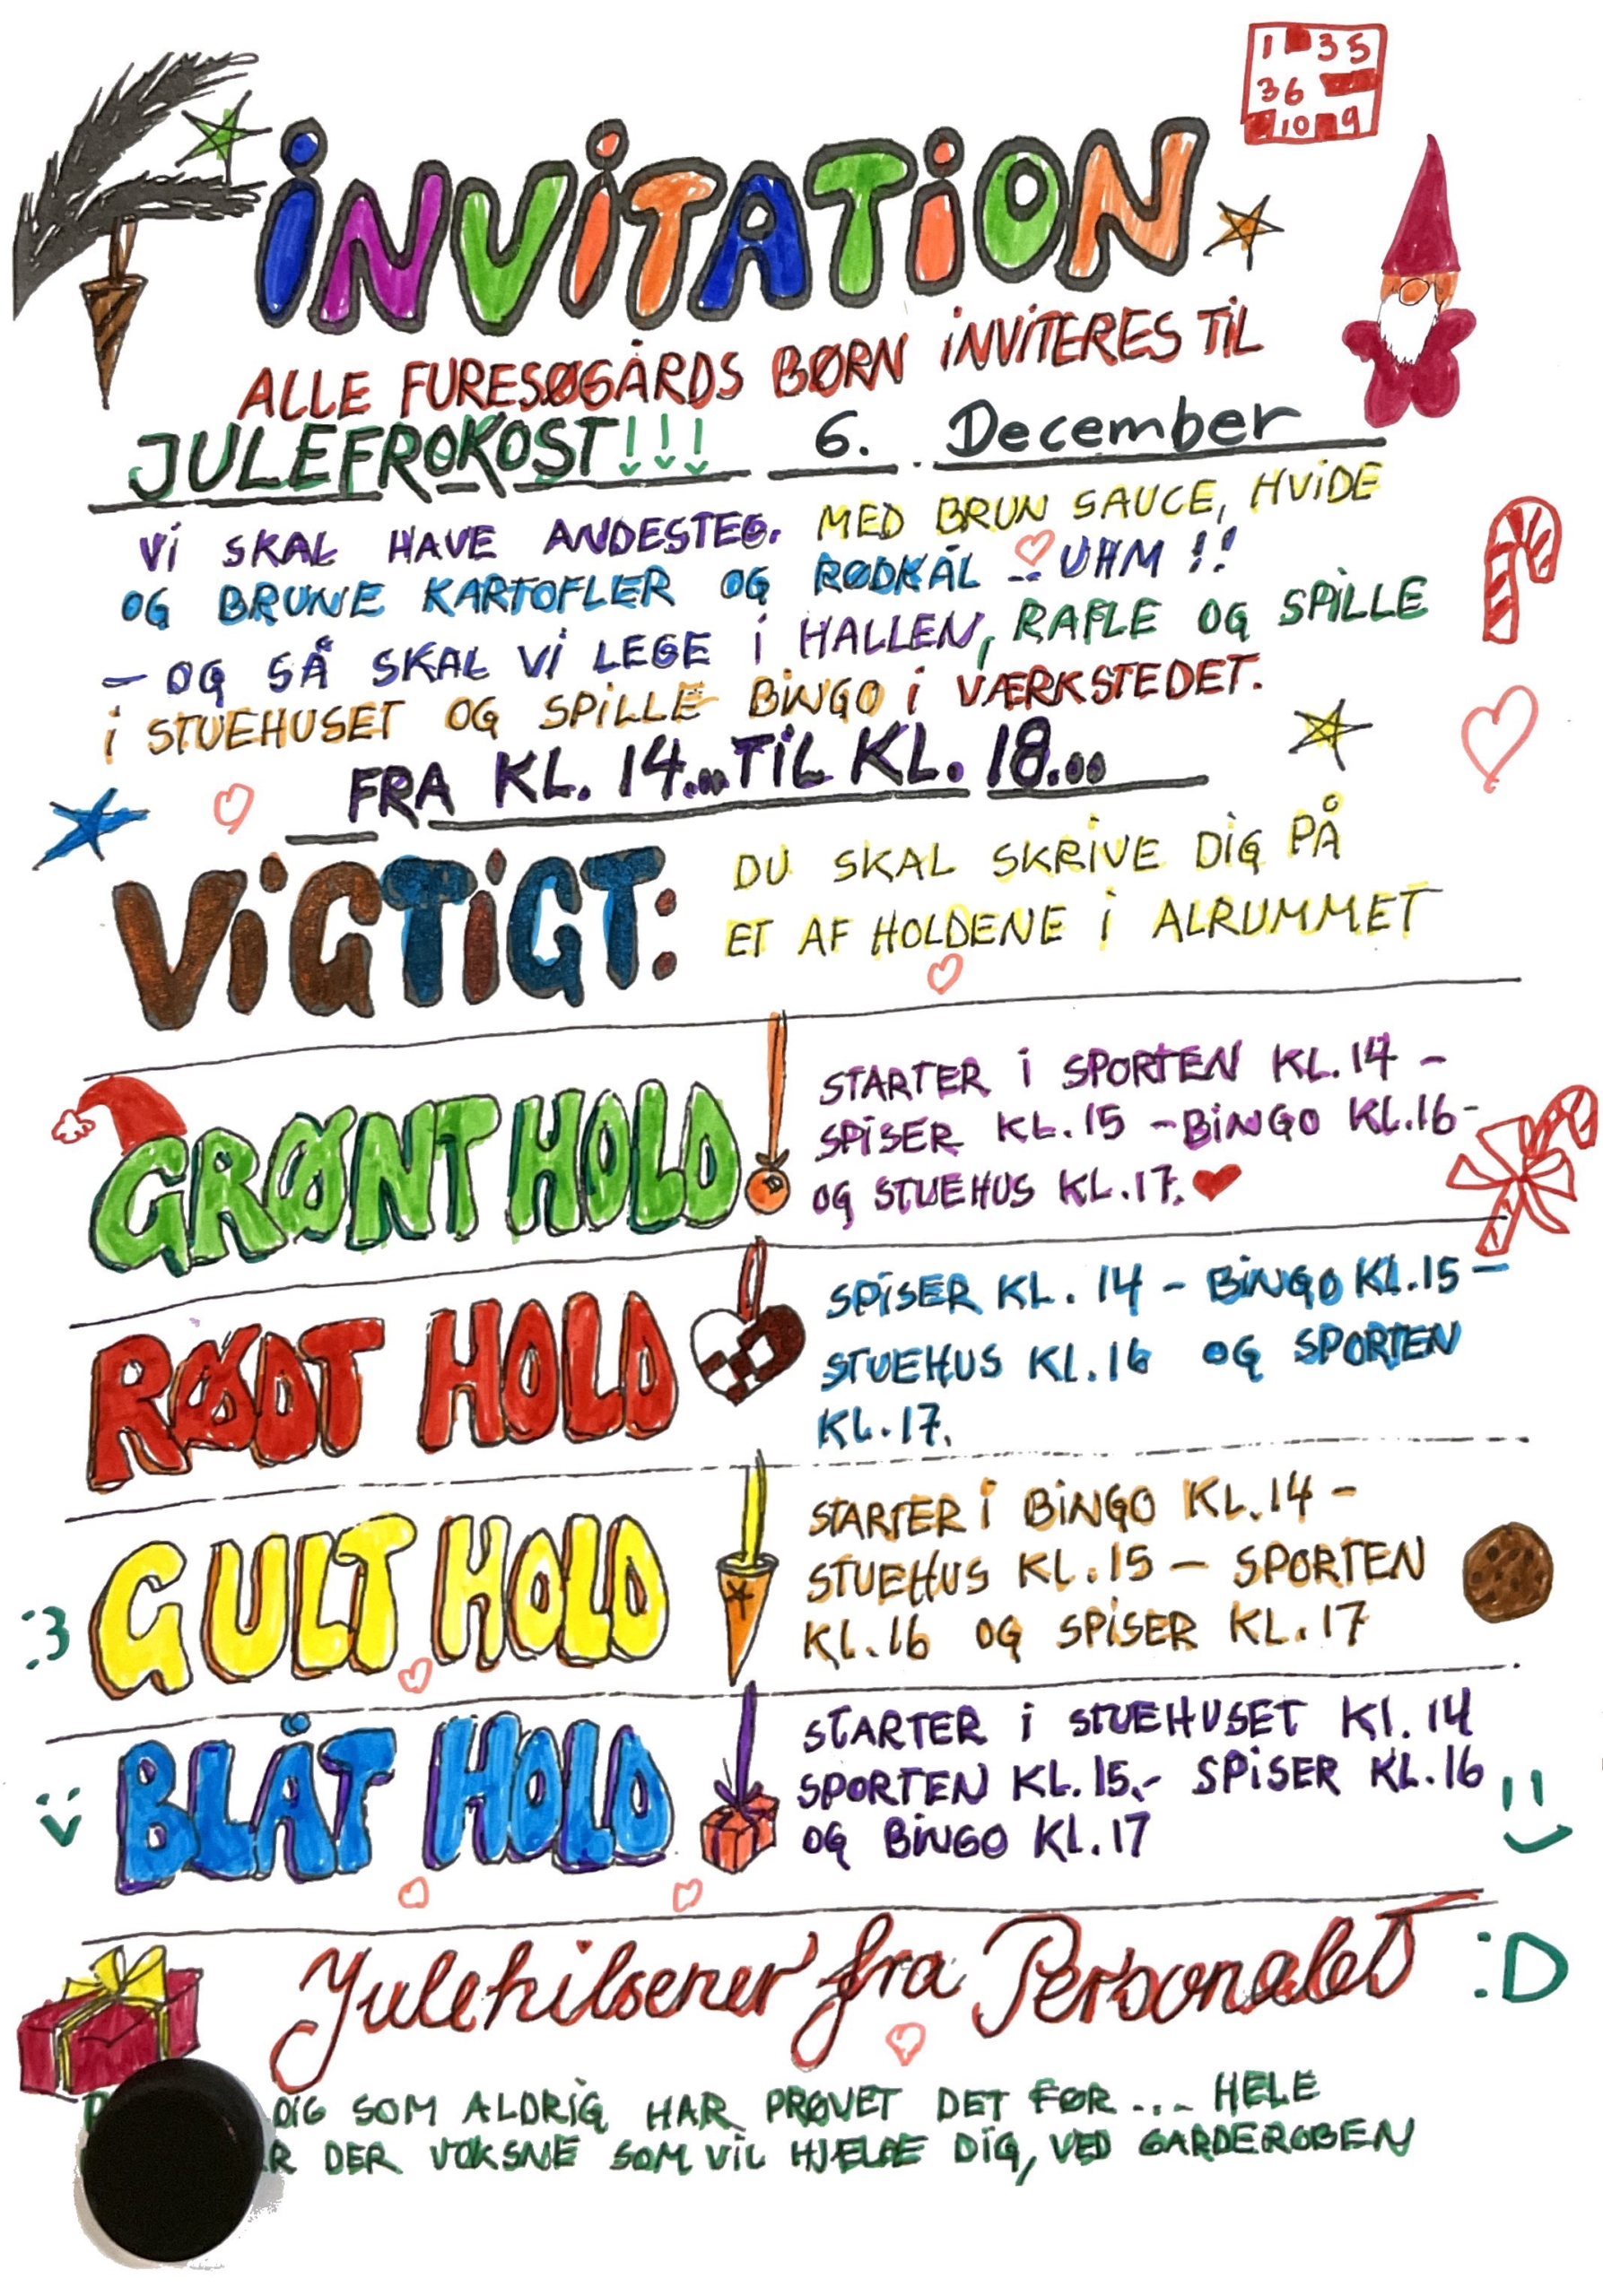 1 35
36
10 9
iNViTATiON
ALLE FURESØGÅRDS BØRN iNViTERES TiL
JULEFROKOST!!! 6. December
Vi SKAL HAVE ANDESTEG. MED BRUN SAUCE, HViDE
OG BRUNE KARTOFLER OG RØDKÅL ... UHM !!
- OG SÅ SKAL Vi LEGE i HALLEN, RAFLE OG SPiLLE
i STUEHUSET OG SPiLLE BiNGO i VÆRKSTEDET.
FRA KL. 14... TiL KL. 18...
ViGTiGT: DU SKAL SKRiVE DiG PÅ
ET AF HOLDENE i ALRUMMET
GRØNT HOLD STARTER i SPORTEN KL. 14 -
SPiSER KL. 15 - BiNGO KL. 16 -
OG STUEHUS KL. 17. ♥
RØDT HOLD SPiSER KL. 14 - BiNGO KL. 15 -
STUEHUS KL. 16 OG SPORTEN
KL. 17.
GULT HOLD STARTER i BiNGO KL. 14 -
STUEHUS KL. 15 - SPORTEN
:3 KL. 16 OG SPiSER KL. 17
BLÅT HOLD STARTER i STUEHUSET Kl. 14
SPORTEN KL. 15. - SPiSER KL. 16
OG BiNGO KL. 17
Julehilsener fra Personalet :D
DiG SOM ALDRiG HAR PRØVET DET FØR ... HELE
R DER VOKSNE SOM ViL HJELPE DiG, VED GARDEROBEN